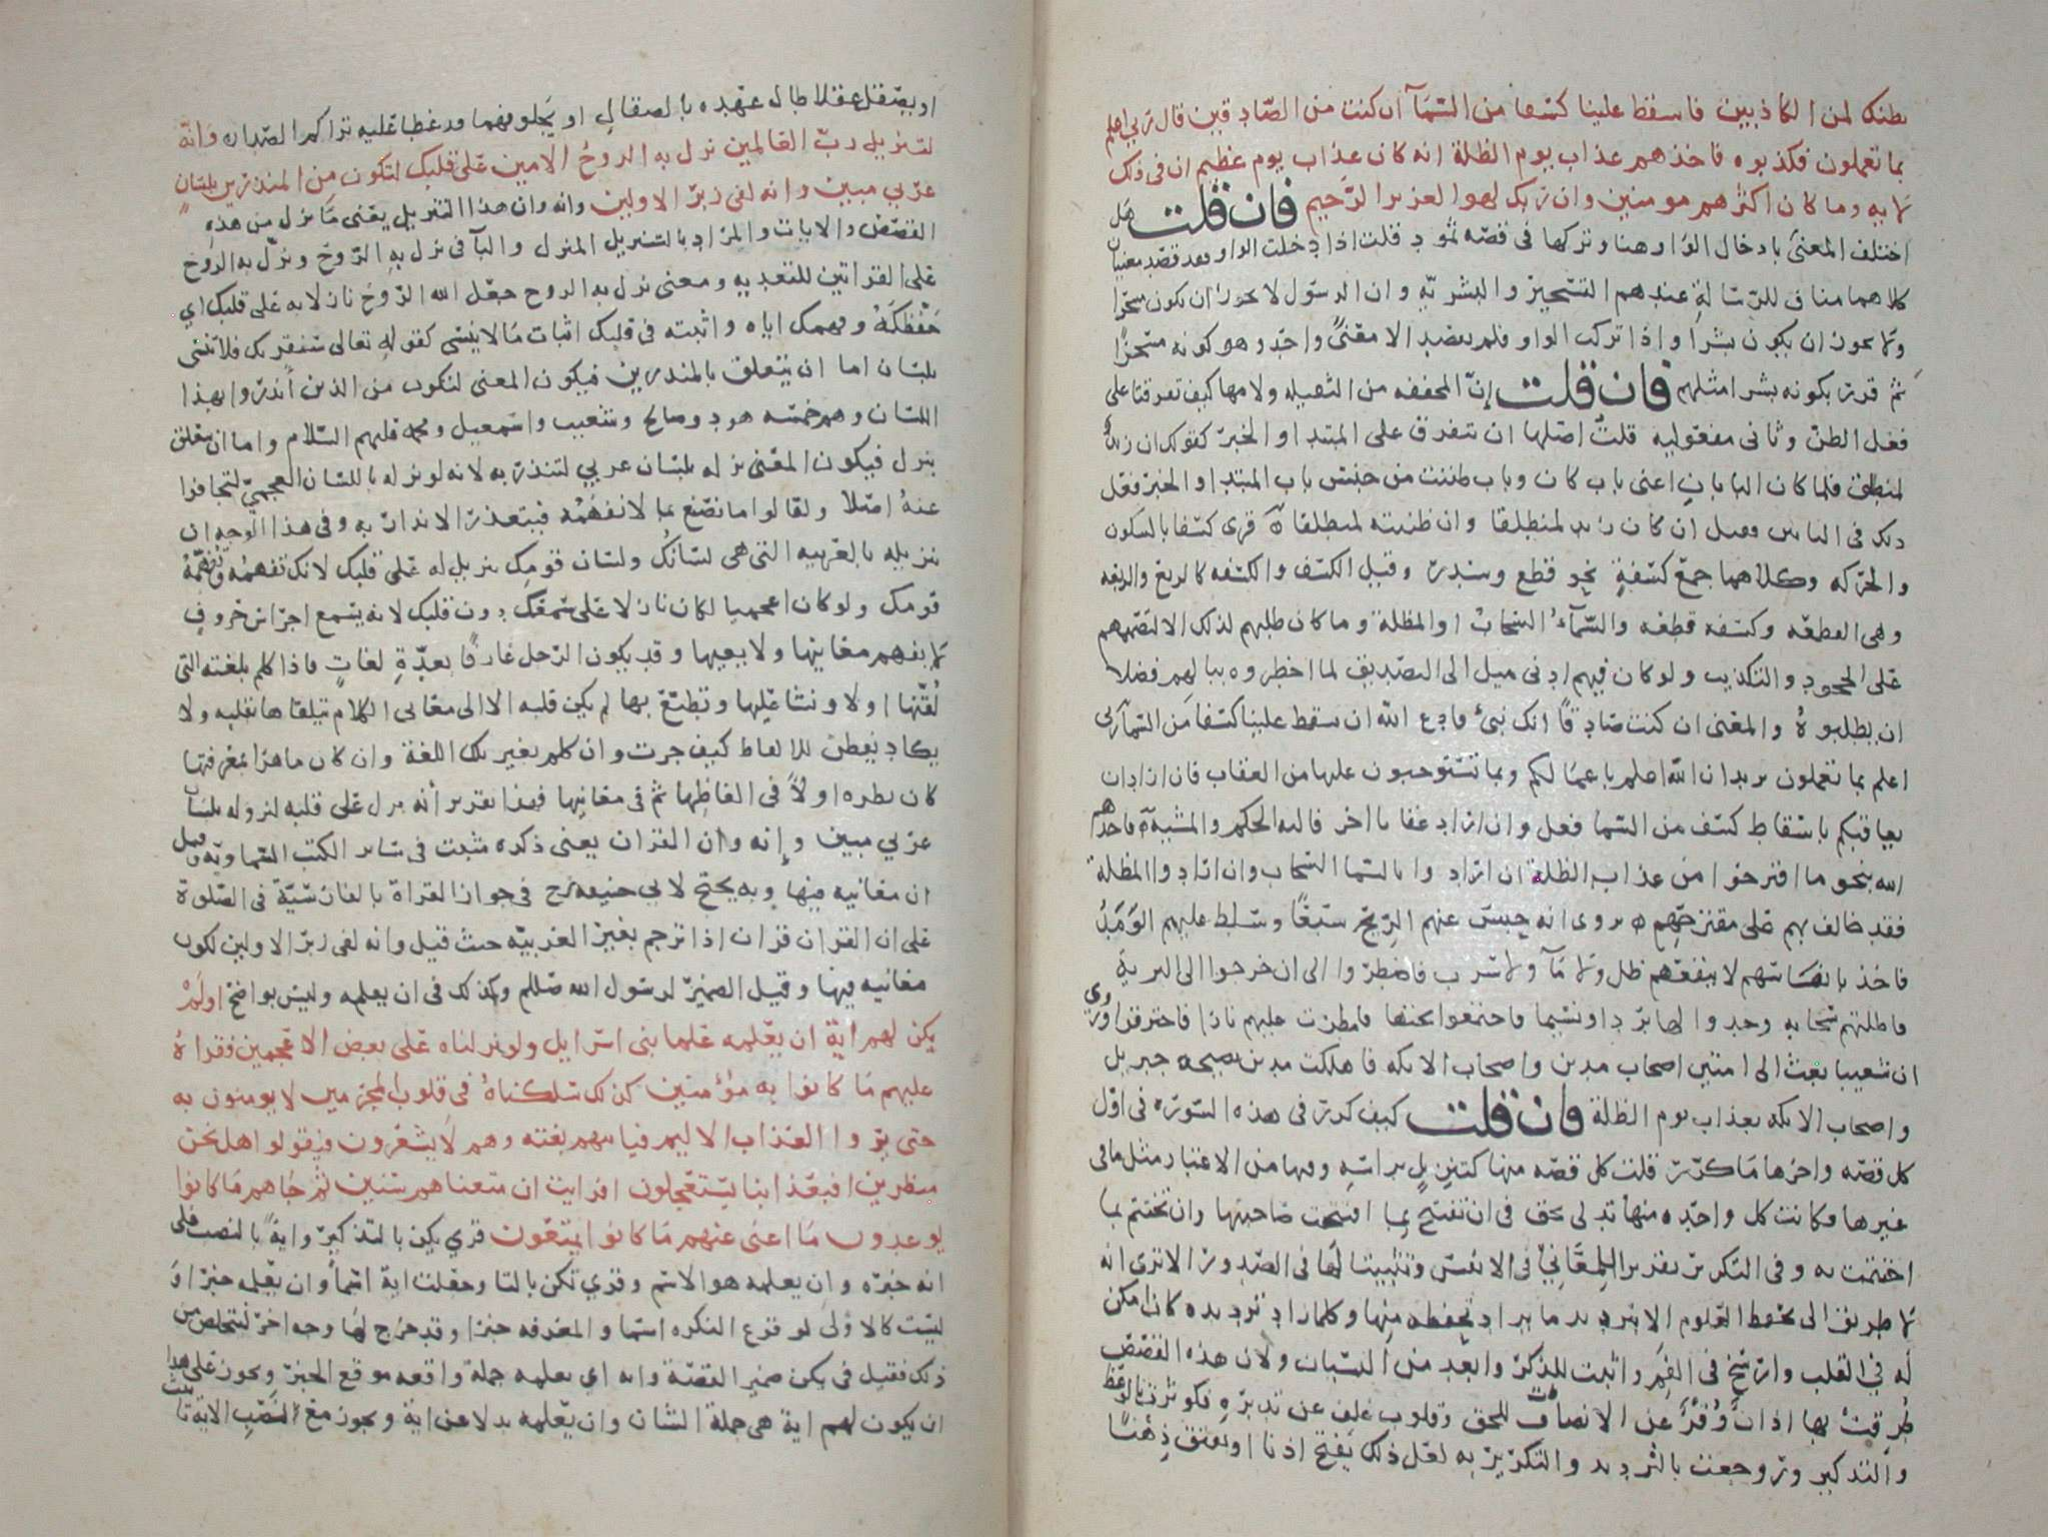 نظنك لمن الكاذبين فاسقط علينا كسفا من السمآ ان كنت من الصادقين قال ربي اعلم
بما تعملون فكذبوه فاخذهم عذاب يوم الظلة انه كان عذاب يوم عظيم ان في ذلك
لايه وما كان اكثرهم مومنين وان ربك لهو العزيز الرحيم فان قلت هل
اختلف المعنى بادخال الواو هنا وتركها في قصه ثمود قلت اذا ادخلت الواو فقد قصد معنيان
كلاهما مناف للرسالة عندهم التسحير والبشريه وان الرسول لا يجوز ان يكون مسحرا
ولا يجوز ان يكون بشرا واذا تركت الواو فلم يقصد الا معنى واحد وهو كونه مسحرا
ثم قرر بكونه بشرا مثلهم فان قلت إن المخففه من الثقيله ولامها كيف تفرقتا على
فعل الظن وثاني مفعوليه قلت اصلها ان تتفرق على المبتدا والخبر كقولك ان زيد
لمنطلق فلما كان البابان اعني باب كان وباب ظننت من جنس باب المبتدا والخبر فعل
ذلك في البابين فقيل ان كان زيد لمنطلقا وان ظننته لمنطلقا قرى كسفا بالسكون
والحركه وكلاهما جمع كسفة نحو قطع وسدر وقيل الكسف والكسفه كالريع والريعه
وهي القطعه وكسفه قطعه والسمآء السحاب او المظلة وما كان طلبهم لذلك الا لتصميمهم
على الجحود والتكذيب ولو كان فيهم ادنى ميل الى التصديق لما اخطروه ببالهم فضلا
ان يطلبوه والمعنى ان كنت صادقا انك نبي فادع الله ان يسقط علينا كسفا من السمآ ربي
اعلم بما تعملون يريد ان الله اعلم باعمالكم وبما تستوجبون عليها من العقاب فان اراد ان
يعاقبكم باسقاط كسف من السما فعل وان اراد عقابا اخر فاليه الحكم والمشية فاخذهم
الله بنحو ما اقترحوا من عذاب الظلة ان ارادوا بالسما السحاب وان ارادوا المظلة
فقد خالف بهم على مقترحهم يروى انه حبس عنهم الريح سبعا وسلط عليهم الومد
فاخذ بانفاسهم لا ينفعهم ظل ولا مآ ولا سرب فاضطروا الى ان خرجوا الى البرية
فاظلتهم سحابه وجدوا لها بردا ونسيما فاجتمعوا تحتها فامطرت عليهم نارا فاحترقوا وروي
ان شعيبا بعث الى امتين اصحاب مدين واصحاب الايكه فاهلكت مدين بصيحه جبريل
واصحاب الايكه بعذاب يوم الظلة فان قلت كيف كرر في هذه السوره في اول
كل قصه واخرها ما كرر قلت كل قصه منها كتنزيل براسه وفيها من الاعتبار مثل ما في
غيرها فكانت كل واحده منها تدلي بحق في ان تفتتح بما افتتحت صاحبتها وان تختتم بما
اختتمت به وفي التكرير تقرير للمعاني في الانفس وتثبيتا لها في الصدور الا ترى انه
لا طريق الى تحفظ العلوم الا ترديد ما يراد تحفظه منها وكلما زاد ترديده كان امكن
له في القلب وارسخ في الفهم واثبت للذكر وابعد من النسيان ولان هذه القصص
طرقت بها اذان وقر عن الانصات للحق وقلوب غلف عن تدبره فكوثرت بالوعظ
والتذكير وروجعت بالترديد والتكرير به لعل ذلك يفتح اذنا او يفتق ذهنا
او يصقل عقلا طال عهده بالصقال او يجلو فهما قد غطا عليه تراكم الصدا وانه
لتنزيل رب العالمين نزل به الروح الامين على قلبك لتكون من المنذرين بلسان
عربي مبين وانه لفي زبر الاولين وانه وان هذا التنزيل يعني ما نزل من هذه
القصص والايات والمراد بالتنزيل المنزل والبآ في نزل به الروح ونزل به الروح
على القراتين للتعديه ومعنى نزل به الروح جعل الله الروح نازلا به على قلبك اي
حفظكه وفهمك اياه واثبته في قلبك اثبات ما لا ينسى كقوله تعالى سنقريك فلا تنسى
بلسان اما ان يتعلق بالمنذرين فيكون المعنى لتكون من الذين أنذروا بهذا
اللسان وهم خمسه هود وصالح وشعيب واسمعيل ومحمد عليهم السلام واما ان يتعلق
بنزل فيكون المعنى نزله بلسان عربي لتنذر به لانه لو نزله باللسان العجمي لتجافوا
عنه اصلا ولقالوا ما نصنع بما لا نفهمه فيتعذر الانذار به وفي هذا الوجه ان
تنزيله بالعربيه التي هي لسانك ولسان قومك تنزيل له على قلبك لانك تفهمه وتفهمه
قومك ولو كان اعجميا لكان نازلا على سمعك دون قلبك لانه يسمع اجراس حروف
لا يفهم معانيها ولا يعيها وقد يكون الرجل عارفا بعدة لغات فاذا كلم بلغته التي
لقنها اولا ونشا عليها وتطبع بها لم يكن قلبه الا الى معاني الكلام يتلقاها بقلبه ولا
يكاد يفطن للالفاظ كيف جرت وان كلم بغير تلك اللغة وان كان ماهرا بمعرفتها
كان نظره اولا في الفاظها ثم في معانيها فهذا تقرير أنه نزل على قلبه لنزوله بلسان
عربي مبين وإنه وان القران يعني ذكره مثبت في سائر الكتب السماويه وقيل
ان معانيه فيها وبه يحتج لابي حنيفه رح في جواز القراة بالفارسية في الصلوة
على ان القران قران اذا ترجم بغير العربيه حيث قيل وانه لفي زبر الاولين لكون
معانيه فيها وقيل الضمير لرسول الله صللم وكذلك في ان يعلمه وليس بواضح اولم
يكن لهم اية ان يعلمه علما بني اسرايل ولو نزلناه على بعض الاعجمين فقراه
عليهم ما كانوا به مؤمنين كذلك سلكناه في قلوب المجرمين لا يومنون به
حتى يروا العذاب الاليم فياتيهم بغته وهم لا يشعرون فيقولوا هل نحن
منظرين افبعذابنا يستعجلون افرايت ان متعناهم سنين ثم جاهم ما كانوا
يوعدون ما اغنى عنهم ما كانوا يمتعون قري يكن بالتذكير واية بالنصب على
انه خبره وان يعلمه هو الاسم وقري تكن بالتا وجعلت اية اسما وان يعلمه خبرا و
ليست كالاولى لوقوع النكره اسما والمعرفه خبرا وقد خرج لها وجه اخر لتتخلص من
ذلك فقيل في يكن ضمير القصة وايه اي يعلمه جملة واقعه موقع الخبر ويجوز على هذا
ان يكون لهم اية هي جملة الشان وان يعلمه بدلا عن اية ويجوز مع نصب الاية تانيث